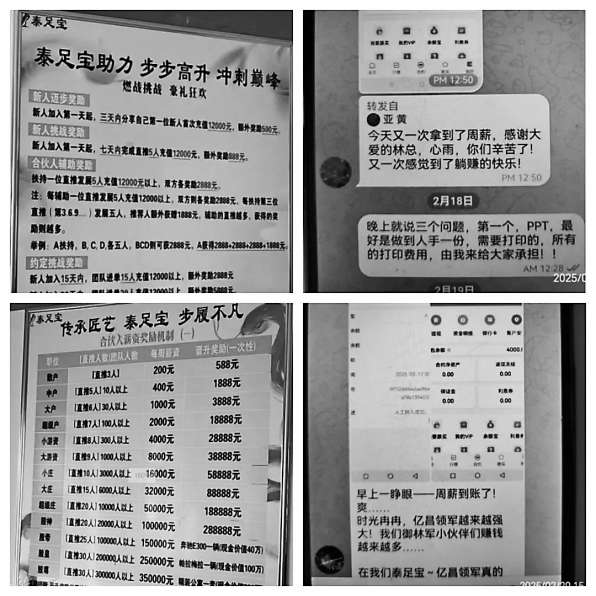 泰足宝
泰足宝助力 步步高升 冲刺巅峰
燃战挑战 豪礼狂欢
新人进步奖励
新人加入第一天起，三天内分享自己第一位新人首次充值12000元，额外奖励500元。
新人挑战奖励
新人加入第一天起，七天内完成直推5人充值12000元，额外奖励888元。
合伙人辅助奖励
扶持一位直推发展5人充值12000元以上，双方各奖励2888元。
注：每辅助一位直推发展5人充值12000元以上，双方则各奖励2888元，每扶持第三位
直推（第3.6.9...）发展五人，推荐人额外获赠1888元，辅助的直推越多，获得的奖
励则越多。
举例：A扶持，B，C，D，各五人，BCD则可获2888元，A获得2888+2888+2888+1888元。
约定挑战奖励
新人加入15天内，团队进单15人充值12000元以上，额外奖励2888元
PM 12:50
转发自
亚 黄
今天又一次拿到了周薪，感谢大
爱的林总，心雨，你们辛苦了！
又一次感觉到了躺赚的快乐！
PM 12:50
2月18日
晚上就说三个问题，第一个，PPT，最
好是做到人手一份，需要打印的，所有
的打印费用，由我来给大家承担！！
AM 12:28
2月19日
泰足宝
传承匠艺 泰足宝 步履不凡
合伙人薪资奖励机制（一）
职位 [直推人数]团队人数 每周薪资 晋升奖励(一次性)
散户 [直推3人] 200元 588元
中户 [直推5人] 10人以上 400元 1888元
大户 [直推6人] 30人以上 1000元 3888元
超级户 [直推7人] 100人以上 2000元 18888元
小游资 [直推8人] 300人以上 4000元 28888元
大游资 [直推9人] 1000人以上 8000元 38888元
小庄 [直推10人] 3000人以上 16000元 58888元
大庄 [直推15人] 6000人以上 32000元 88888元
超级庄 [直推20人] 10000人以上 50000元 188888元
股神 [直推20人] 20000人以上 100000元 288888元
股帝 [直推25人] 100000人以上 150000元 奔驰E300一辆(现金价值40万)
股皇 [直推30人] 200000人以上 250000元 帕拉梅拉一辆(现金价值100万)
[直推30人] 300000人以上 350000元
4000.
0.00 0.00
0.00 0.00
我的VIP
早上一睁眼——周薪到账了！
爽……
时光冉冉，亿昌领军越来越强
大！我们御林军小伙伴们赚钱
越来越多……
在我们泰足宝～亿昌领军真的